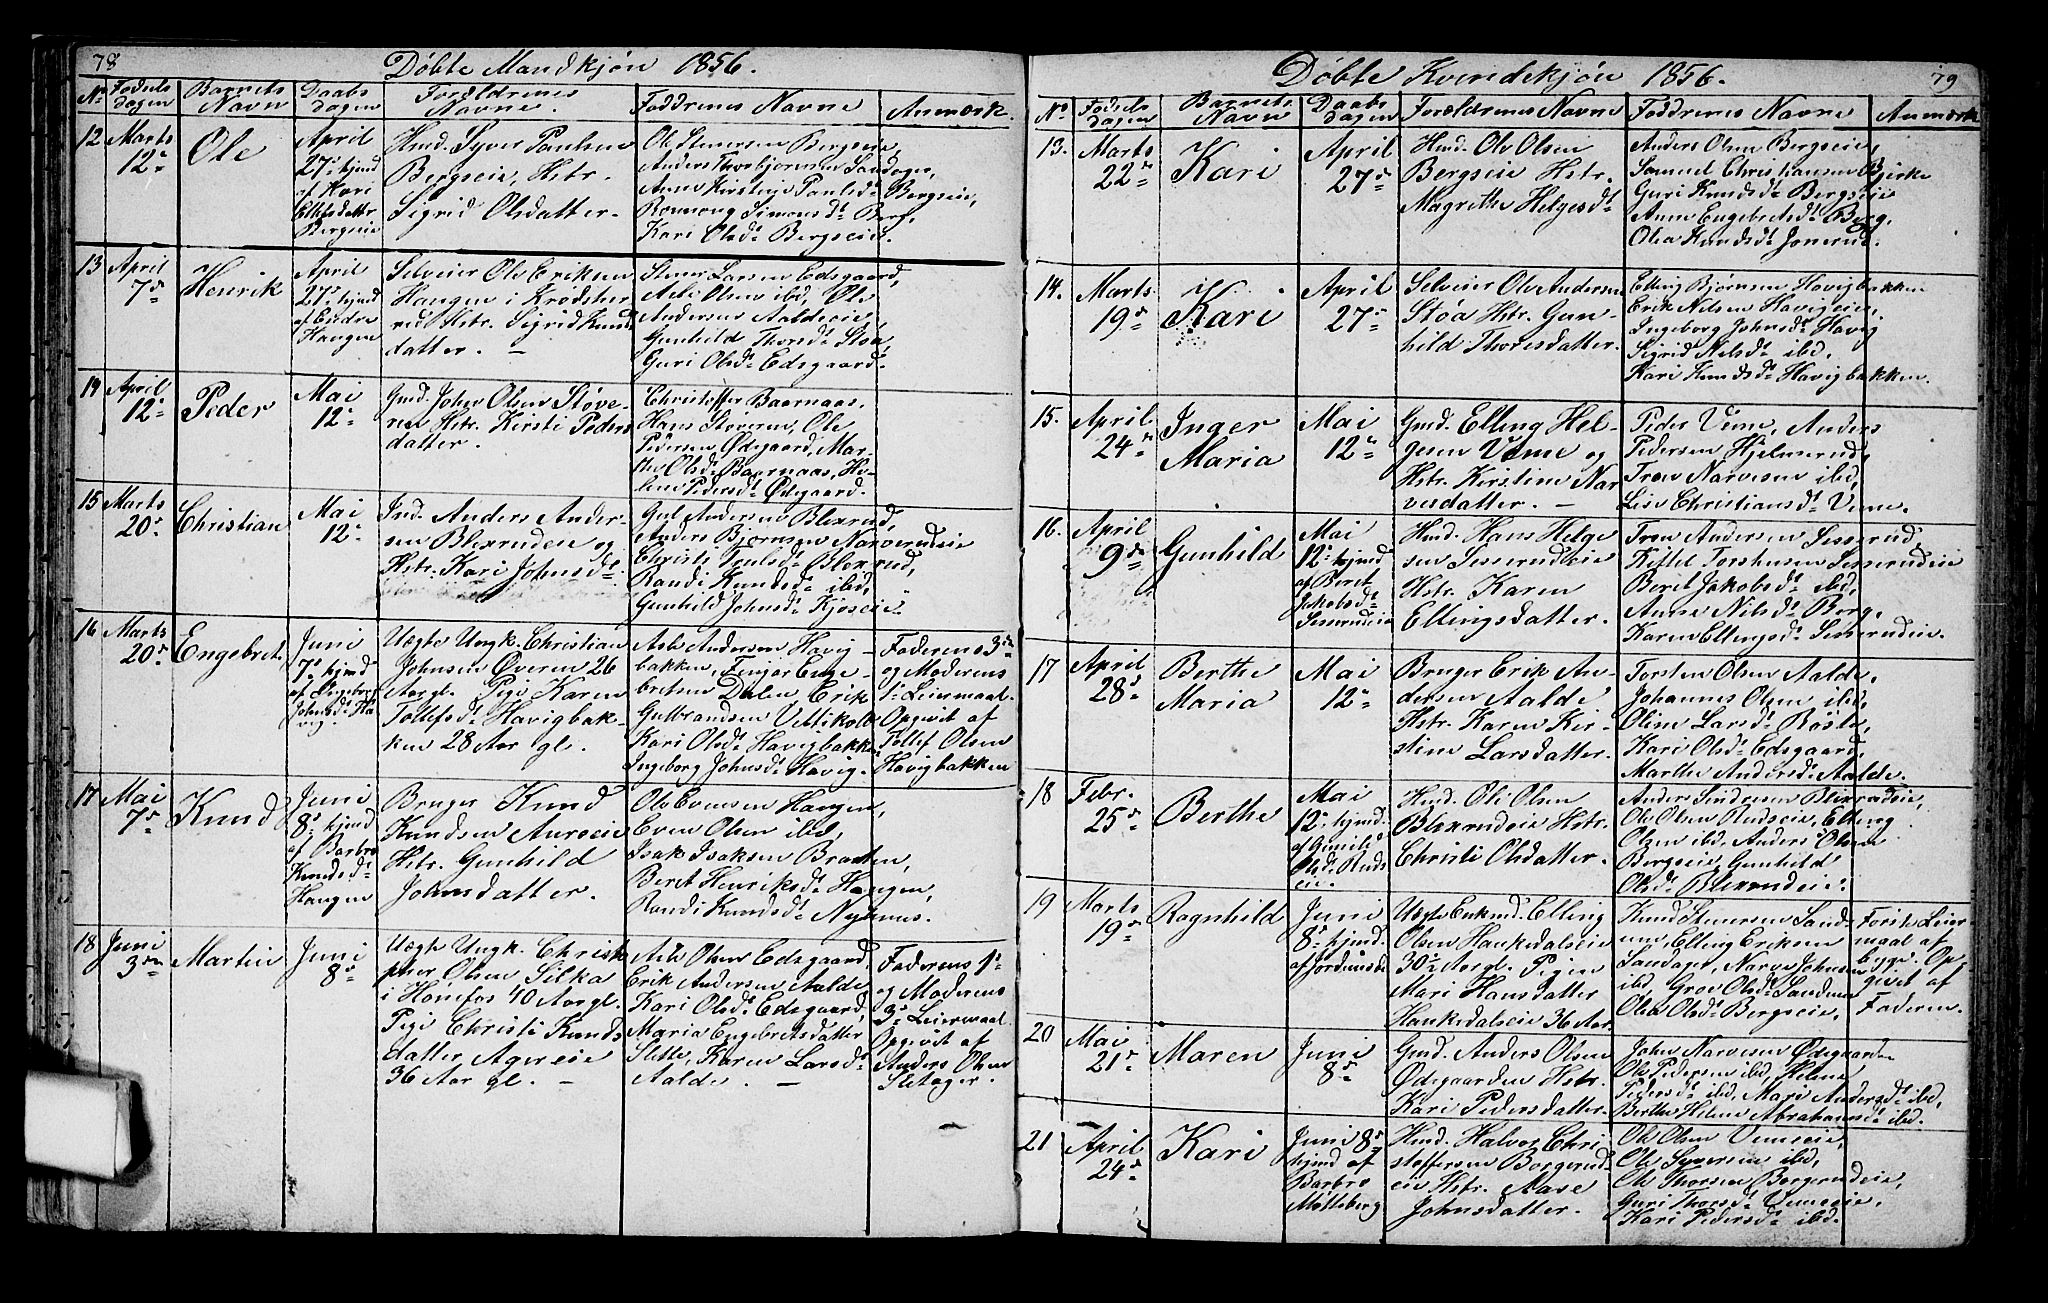 78
Døbte Mandkjøn 1856.
No Fødselsdagen Barnets Navn Daabsdagen Forældrenes Navne. Faddrenes Navne Anmærk.
12 Marts 12te Ole
April
27de hjmd
af Kari
Bergseie
Hmd. Syver Paulsen
Bergseie, Hstr.
Sigrid Olsdatter.
Ole Steensen Bergseie,
Anders Thorbjørnsen Sandager,
Anne Kirstine Paulsdr Bergseie,
Rønnoug Simonsdr Berg,
Kari Olsdr Bergseie.
13 April 7de Henrik
April
27de hjmd
af Endre
Haugen
Selveier Ole Eriksen
Haugen i Krødshe-
rud Hstr. Sigrid Knuds
datter. —
Steen Larsen Edsgaard,
Asle Olsen ibd, Ole
Andersen Aaldeeie,
Gunhild Thorsdr Støa,
Guri Olsdr Edsgaard.
14 April 12te Peder
Mai
12te
Gmd. Johan Olsen Støve-
ren Hstr. Kirsti Peders
datter.
Christoffer Baarnaas,
Hans Støveren, Ole
Pedersen Ødegaard, Mar-
the Olsdr Baarnaas, He-
lene Pedersdr Ødegaard.
15 Marts 20de Christian
Mai
12te
Ind. Anders Ander-
sen Blexrudeie og
Hstr. Kari Johnsdr
Gul Andersen Blexrud,
Anders Bjørnsen Narverudeie
Christi Trulsdr Blexrud,
Randi Knudsdr ibd,
Gunhild Johnsdr Kjøseie.
16 Marts 20de Engebret
Juni
7de hjmd
af Ingeborg
Johnsdr Ha-
vig
Uægte Ungk. Christian
Johnsen Øveren 26
Aar gl. Pige Karen
Tollefsdr Havigbak-
ken 28 Aar gl.
Asle Andersen Havig-
bakken, Fingar Enge-
bretsen Dalen Erik
Gulbrandsen Vettikoll
Kari Olsdr Havigbakken
Ingeborg Johnsdr Havig.
Faderens 3die
og Moderens
1ste Leiermaal.
Opgivet af
Tollef Olsen
Havigbakken
17 Mai 7de Knud
Juni
8de hjmd
af Barbro
Knudsdr
Haugen
Bruger Knud
Knudsen Aurseie
Hstr. Gunhild
Johnsdatter.
Ole Evensen Haugen,
Even Olsen ibd,
Isak Isaksen Braaten,
Beret Henriksdr Haugen,
Randi Knudsdr Nyhuus.
18 Juni 3die Martin
Juni
8de
Uægte Ungk. Christo-
pher Olsen Silka
i Hønefos 40 Aar gl.
Pige Christi Knuds
datter Agereie
36 Aar gl. —
Asle Olsen Edsgaard,
Erik Andersen Aalde
Kari Olsdr Edsgaard,
Maria Engebretsdatter
Slette, Karen Larsdr
Aalde. —
Faderens 1ste
og Moderens
3die Leiermaal.
Opgivet af
Anders Olsen
Sletager.
79
Døbte Kvindekjøn 1856.
No Fødselsdagen Barnets Navn Daabsdagen Forældrenes Navne Faddrenes Navne Anmærk
13. Marts 22de Kari
April
27de
Hmd. Ole Olsen
Bergseie Hstr.
Magrethe Helgesdr
Anders Olsen Bergseie,
Samuel Christiansen Bjerke
Guri Knudsdr Bergseie
Anne Engebretsdr Berg,
Olea Knudsdr Jonerud.
14. Marts 19de Kari
April
27de
Selveier Ole Andersen
Støa Hstr. Gun-
hild Thoresdatter.
Elling Bjørnsen Havigbakken
Erik Nilsen Havigeie,
Ingeborg Johnsdr Havig
Sigrid Nilsdr ibd,
Kari Knudsdr Havigbakken.
15. April 24de Inger Maria
Mai
12te
Gmd. Elling Hel-
gesen Veme og
Hstr. Kirstine Nar
vesdatter. —
Peder Veme, Anders
Pedersen Hjelmerud,
Trøn Narvesen ibd,
Lise Christiansdr Veme.
16. April 9de Gunhild
Mai
12te hjmd
af Beret
Jakobsdr
Sesserudeie
Hmd. Hans Helge
sen Sesserudeie
Hstr. Karen
Ellingsdatter.
Trøn Andersen Sesserud,
Kittel Torstensen Sesserudeie
Beret Jakobsdr ibd,
Anne Nilsdr Berg,
Karen Ellingsdr Sesserudeie.
17 April 28de Berthe Maria
Mai
12te
Bruger Erik An-
dersen Aalde
Hstr. Karen Kir-
stine Larsdatter.
Torsten Olsen Aalde,
Johannes Olsen ibd,
Oline Larsdr Røste,
Kari Olsdr Edsgaard,
Marthe Andersdr Aalde.
18 Febr. 25de Berthe
Mai
12te hjmd.
af Gunild
Olsdr Ruds
eie.
Hmd. Ole Olsen
Blexrudeie Hstr.
Christi Olsdatter.
Anders Sindresen Blexrudeie,
Ole Olsen Rudseie, Elling
Olsen ibd, Anders Olsen
Bergseie, Gunhild
Olsdr Blexrudeie.
19 Marts 19de Ragnhild
Juni
8de hjmd.
Uægte Enkmd. Elling
Olsen Haukedalseie
30 Aar gl. Pigen
Mari Hansdatter
Haukedalseie 36 Aar.
Knud Steensen Sand-
um, Elling Eriksen
Sandager, Narve Johnsen
ibd, Groe Olsdr Sandum
Olea Olsdr Bergseie,
Første Leier
maal af
begge. Op-
givet af
Faderen.
20 Mai 21de Maren
Juni
8de
Gmd. Anders Olsen
Ødegaarden Hstr.
Kari Pedersdatter.
John Narvesen Ødegaarden
Ole Pedersen ibd, Helene
Pedersdr ibd, Mari Andersdr ibd,
Berthe Helene Abrahamsdr ibd.
21 April 24de Kari
Juni 8de
hjmd af
Barbro
Møtteberg
Hmd. Halvor Chri
stoffersen Borgerud-
eie Hstr. Aase
Johnsdatter.
Ole Olsen Vemeeie,
Ole Syversen ibd,
Ole Thorsen Borgerudeie,
Guri Thorsdr Vemeeie,
Kari Pedersdr ibd.